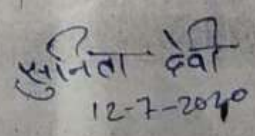 सुनिता देवी
12-7-2020